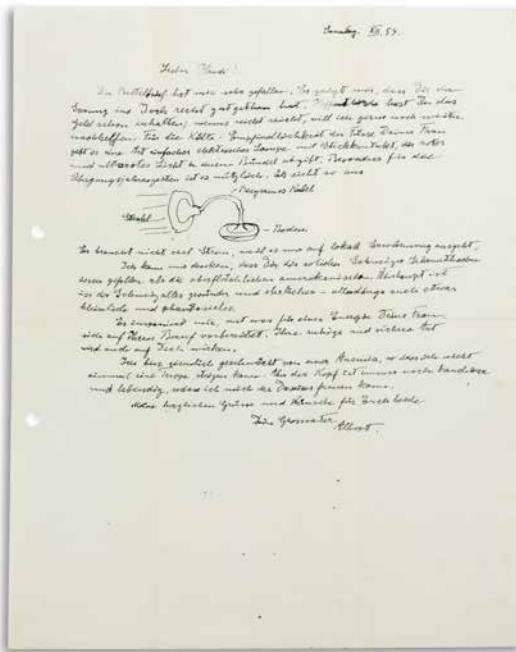 Sonntag. XII. 54.
Lieber Hardi!
Der Brief hat mir sehr gefallen. Er zeigt mir, dass Dir der
Sprung ins Joch recht gut gethan hat. Hast Du das
Geld schon erhalten; wenn es nicht reicht, will ich gerne noch weiter
nachhelfen. Für die Kälte-Empfindlichkeit der Füsse Deiner Frau
gibt es eine Art einfacher elektrischer Lampe mit, die rotes
und ultrarotes Licht in einem Bündel abgibt. Besonders für die
Übergangsjahreszeiten ist es nützlich. Es sieht so aus
Biegsames Kabel
Strahl
Boden
Er braucht nicht viel Strom, weil es nur auf lokale Erwärmung ausgeht.
Ich kann mir denken, dass Dir die soliden Schweizer
besser gefallen als die oberflächlichen amerikanischen. Überhaupt ist
in der Schweiz alles gesünder und ehrlicher - allerdings auch etwas
kleinlich und phantasielos.
Es imponiert mir, mit was für einer Energie Deine Frau
sich auf ihren Beruf vorbereitet. Ihre ruhige und sichere Art
wird auch auf Dich wirken.
Ich bin ziemlich geschwächt von einer Anämie, so dass ich nicht
einmal eine Treppe steigen kann. Aber der Kopf ist immer noch
und lebendig, sodass ich mich des Daseins freuen kann.
Meine herzlichen Grüsse und Wünsche für Euch beide
Dein Grossvater
Albert.